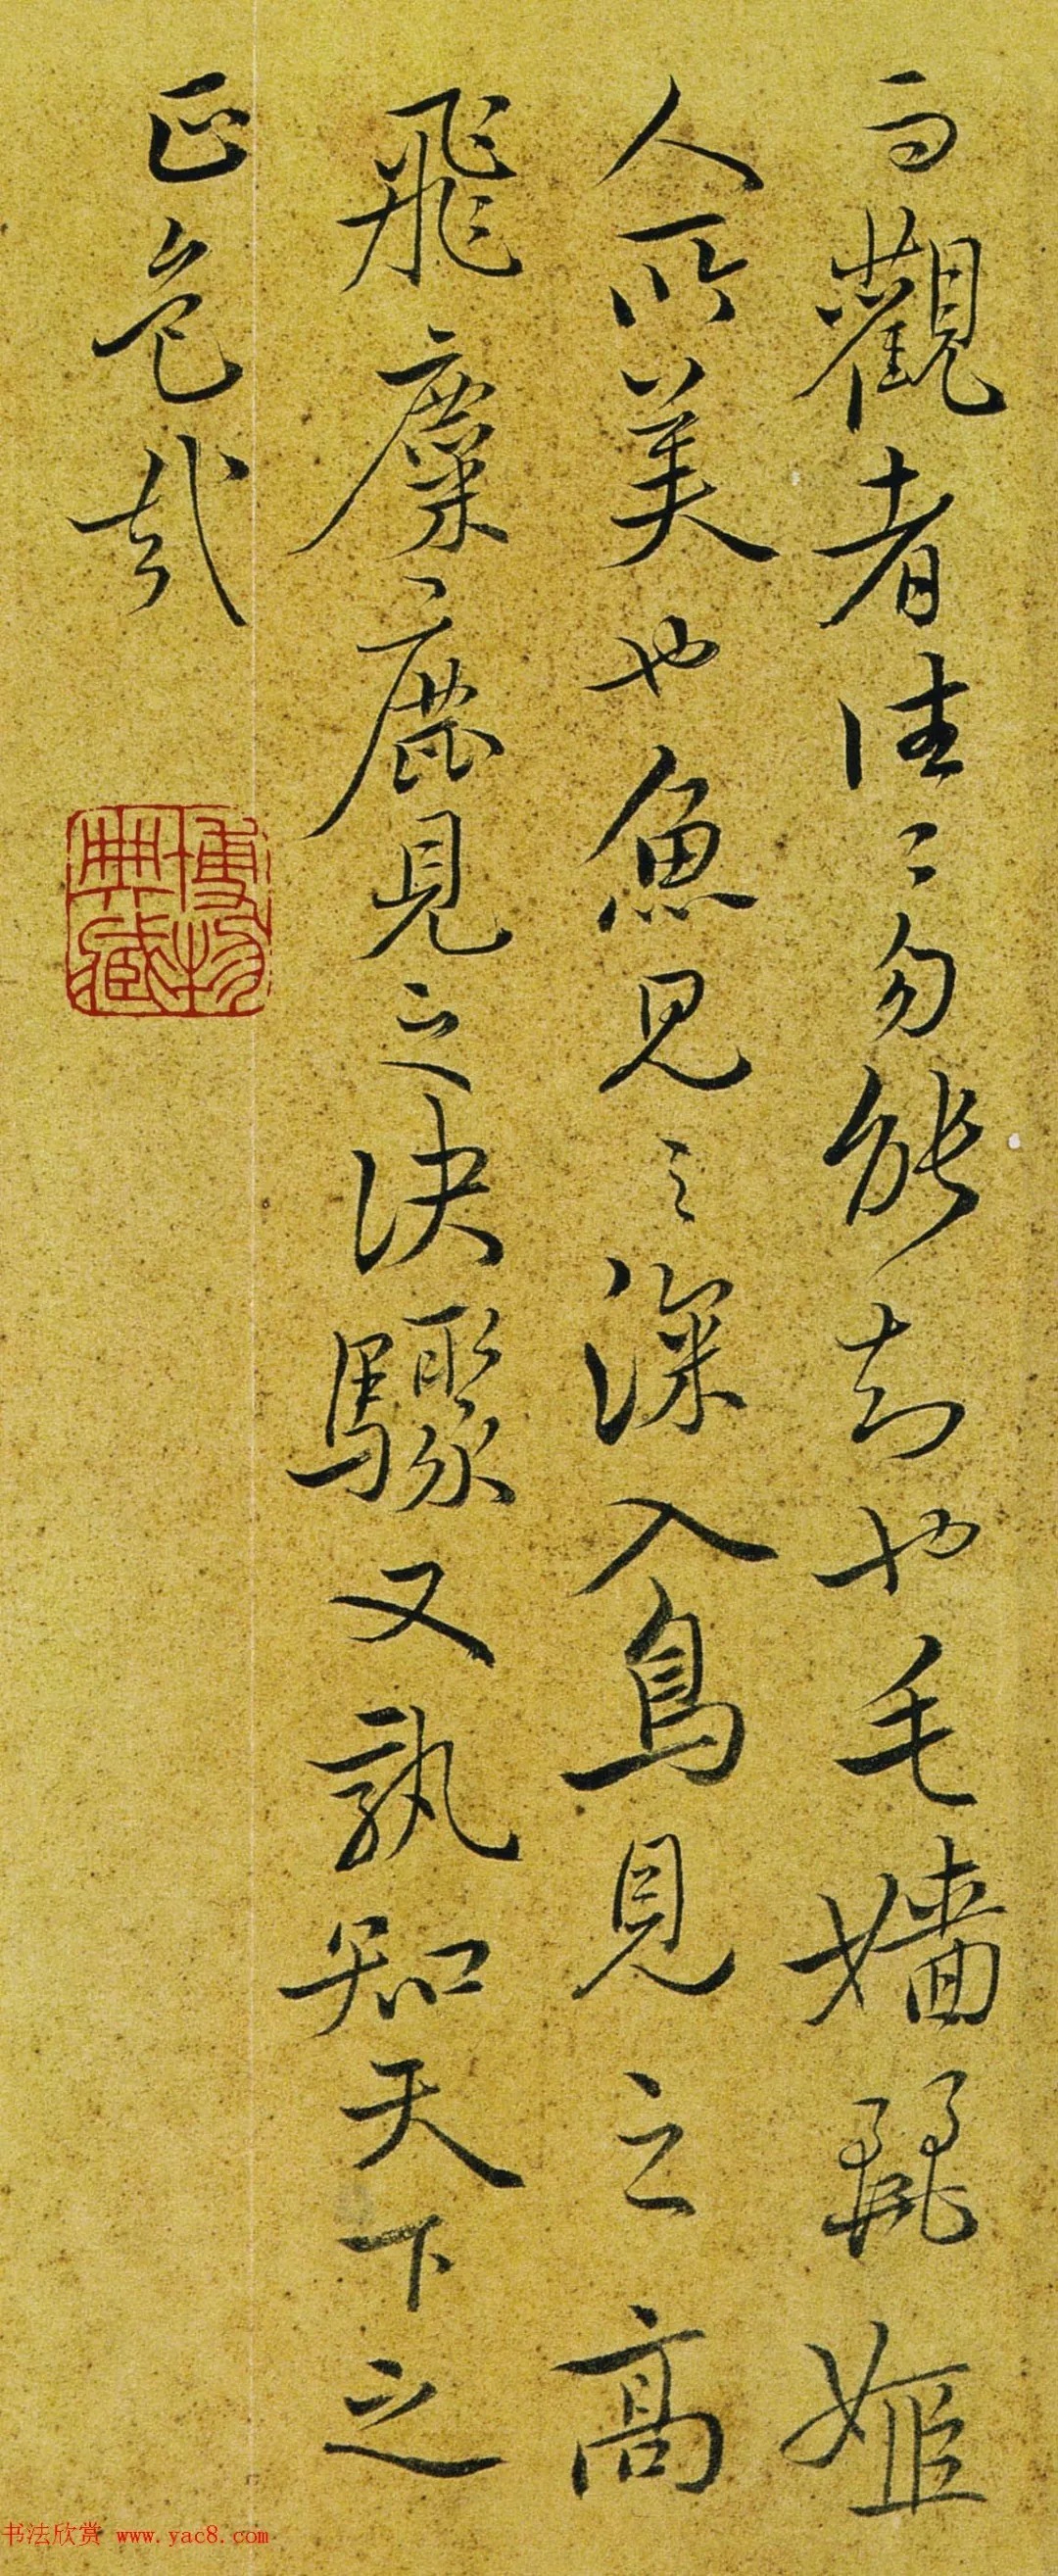 而觀者往〻勿能知也毛嬙麗姬
人所美也魚見之深入鳥見之高
飛麋鹿見之決驟又孰知天下之
正色哉
博物典藏
书法欣赏 www.yac8.com